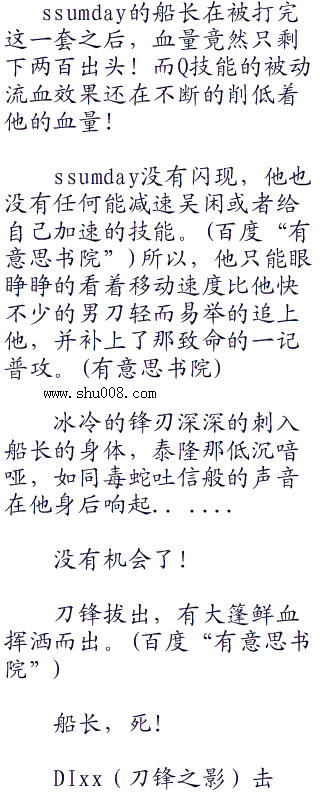 ssumday的船长在被打完
这一套之后，血量竟然只剩
下两百出头！而Q技能的被动
流血效果还在不断的削低着
他的血量！
ssumday没有闪现，他也
没有任何能减速吴闲或者给
自己加速的技能。(百度“有
意思书院”)所以，他只能眼
睁睁的看着移动速度比他快
不少的男刀轻而易举的追上
他，并补上了那致命的一记
普攻。(有意思书院)
www.shu008.com
冰冷的锋刃深深的刺入
船长的身体，泰隆那低沉喑
哑，如同毒蛇吐信般的声音
在他身后响起......
没有机会了！
刀锋拔出，有大篷鲜血
挥洒而出。(百度“有意思书
院”)
船长，死！
DIxx（刀锋之影）击